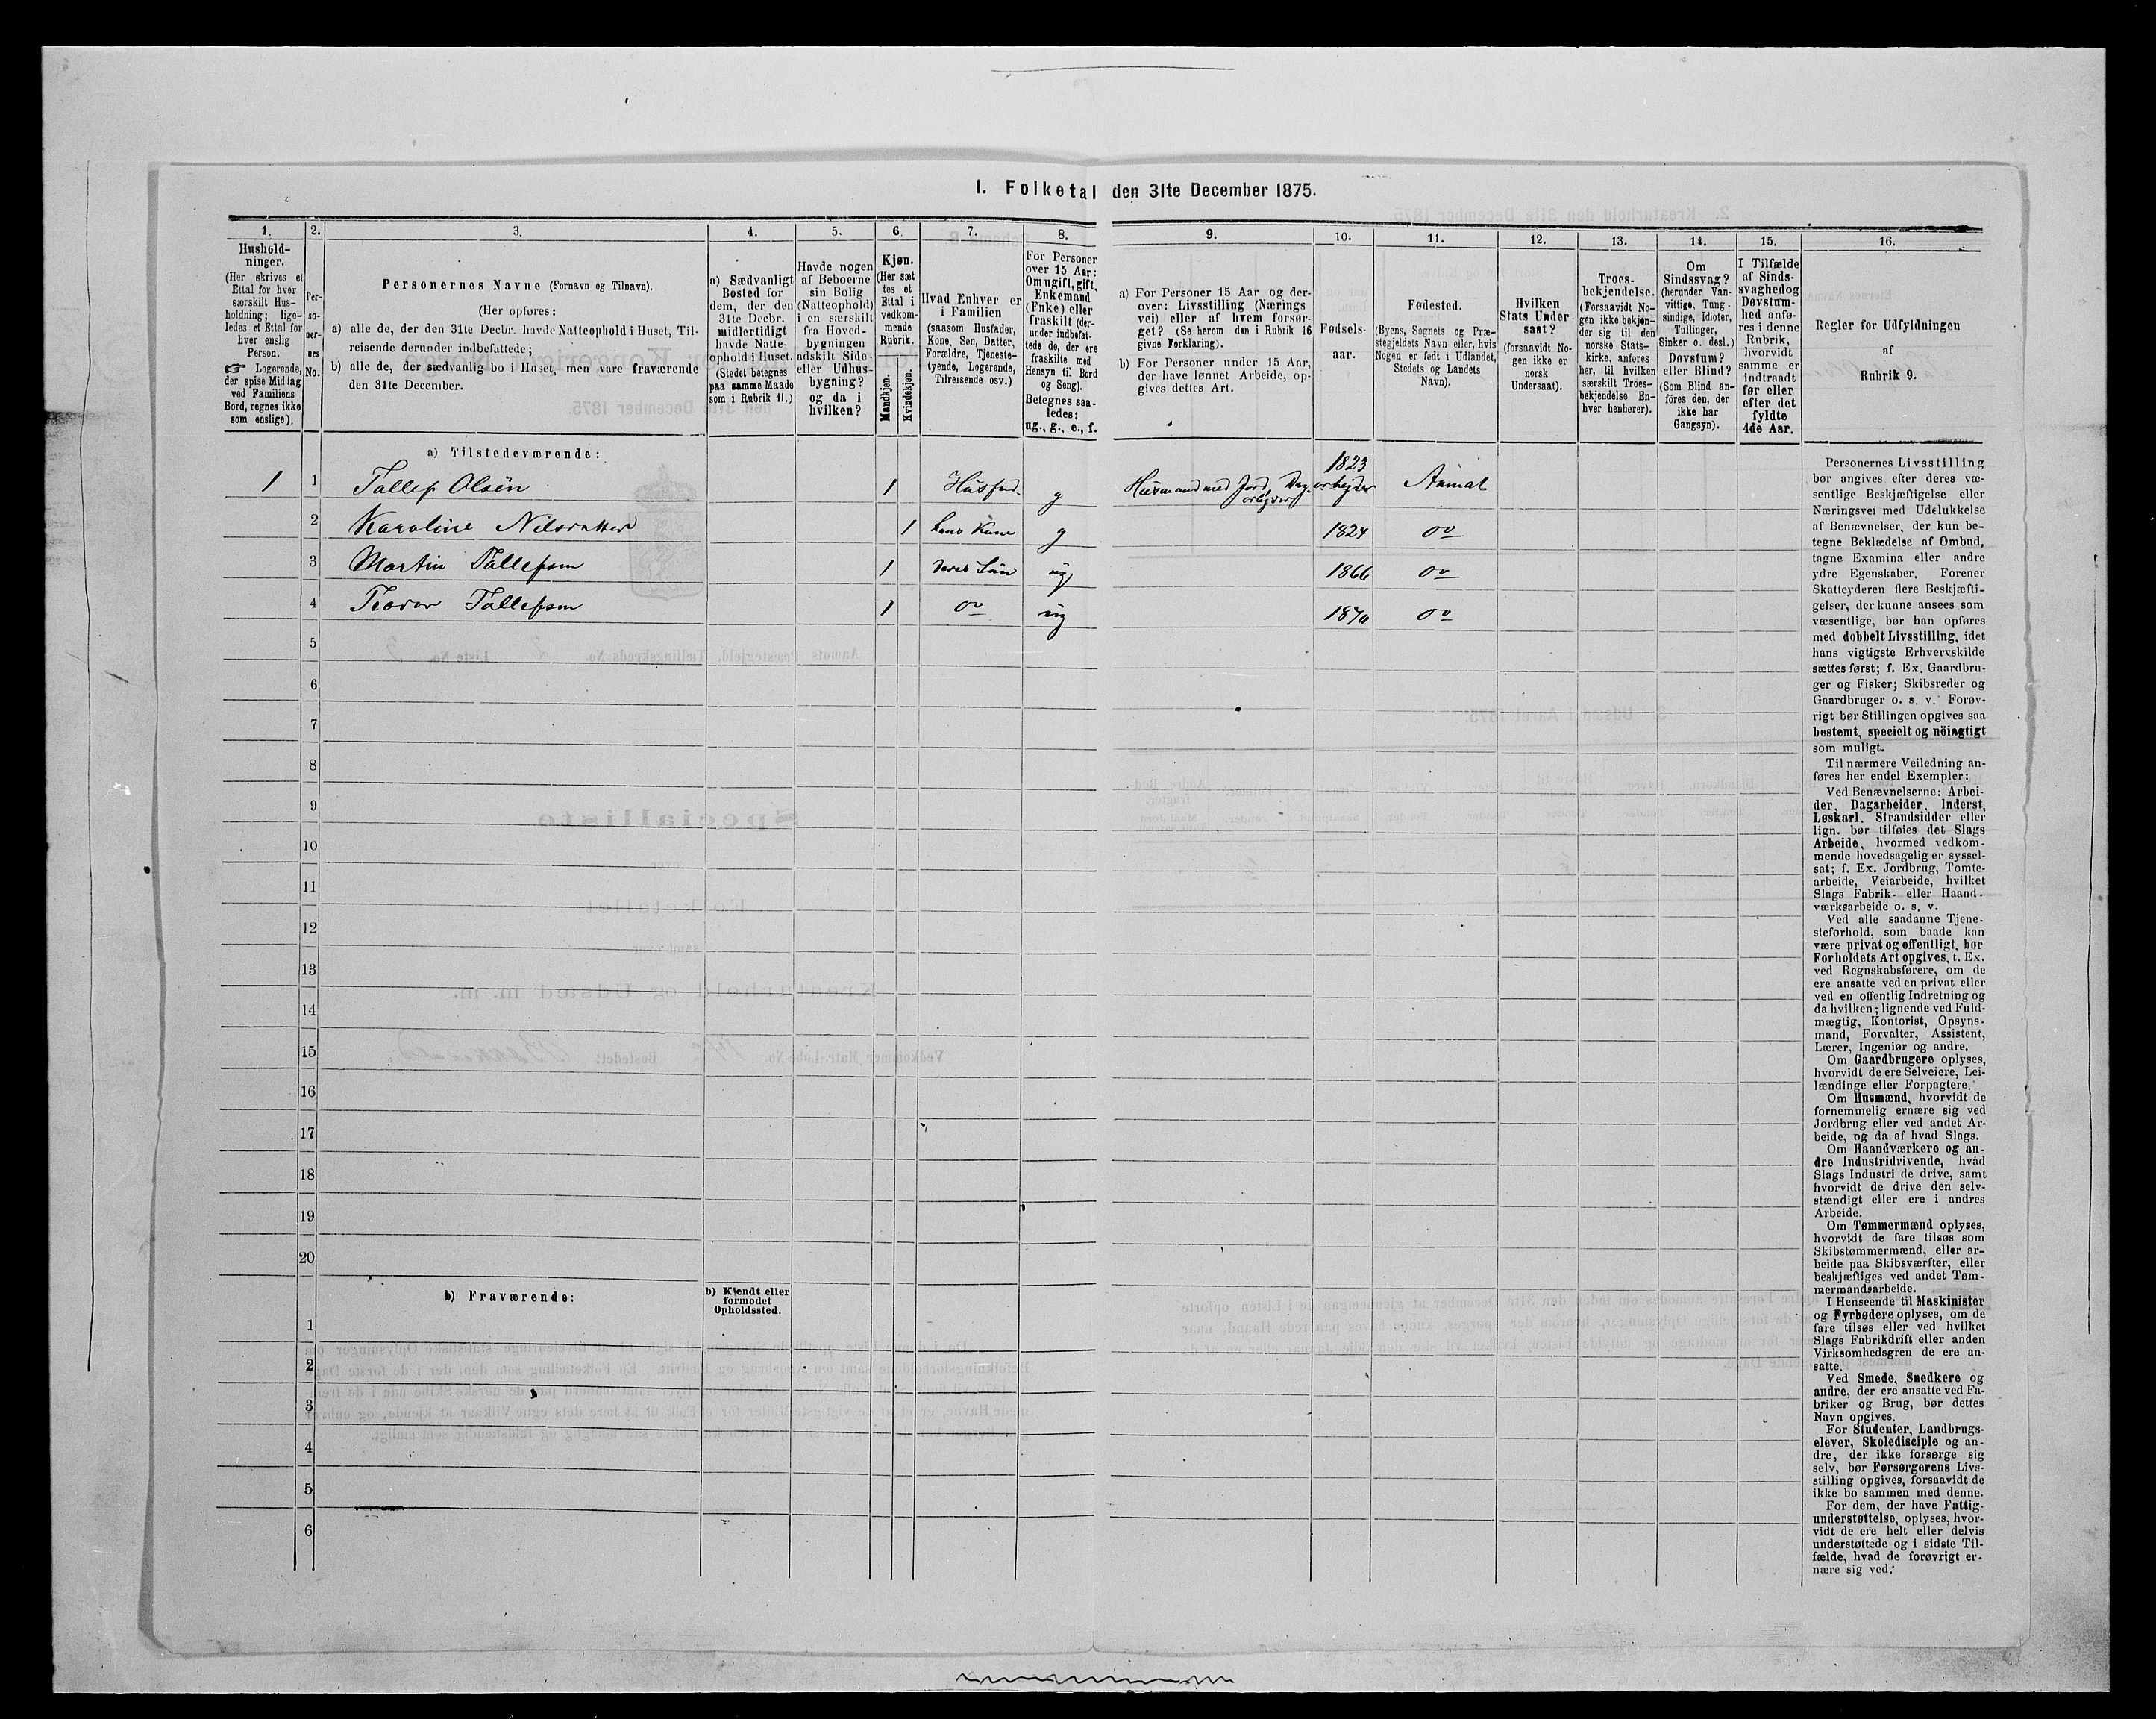 I. Folketal den 31te December 1875.
1.
2.
3.
4.
5.
6.
7.
8.
9.
10.
11.
12.
13.
14.
15.
16.
Hushold-
ninger.
(Her skrives et
Ettal for hver
særskilt Hus-
holdning; lige-
ledes et Ettal for
hver enslig
Person.
☞ Logerende,
der spise Middag
ved Familiens
Bord, regnes ikke
som enslige).
Per-
so-
ner-
nes
No.
Personernes Navne (Fornavn og Tilnavn).
(Her opføres:
a) alle de, der den 31te Decbr. havde Natteophold i Huset, Til-
reisende derunder indbefattede;
b) alle de, der sædvanlig bo i Huset, men vare fraværende
den 31te December.
a) Sædvanligt
Bosted for
dem, der den
31te Decbr.
midlertidigt
havde Natte-
ophold i Huset.
(Stedet betegnes
paa samme Maade
som i Rubrik 11.)
Havde nogen
af Beboerne
sin Bolig
(Natteophold)
i en særskilt
fra Hoved-
bygningen
adskilt Side-
eller Udhus-
bygning?
og da i
hvilken?
Kjøn.
(Her sæt
tes et
Ettal i
vedkom-
mende
Rubrik.
Mandkjøn.
Kvindekjøn.
Hvad Enhver er
i Familien
(saasom Husfader,
Kone, Søn, Datter,
Forældre, Tjeneste-
tyende, Logerende,
Tilreisende osv.)
For Personer
over 15 Aar:
Om ugift, gift,
Enkemand
(Enke) eller
fraskilt (der-
under indbefat-
tede de, der ere
fraskilte med
Hensyn til Bord
og Seng).
Betegnes saa-
ledes:
ug., g., e., f.
a) For Personer 15 Aar og der-
over: Livsstilling (Nærings
vei) eller af hvem forsør-
get? (Se herom den i Rubrik 16
givne Forklaring).
b) For Personer under 15 Aar,
der have lønnet Arbeide, op-
gives dettes Art.
Fødsels-
aar.
Fødested.
(Byens, Sognets og Præ-
stegjeldets Navn eller, hvis
Nogen er født i Udlandet,
Stedets og Landets
Navn).
Hvilken
Stats Under
saat?
(forsaavidt No-
gen ikke er
norsk
Undersaat).
Troes-
bekjendelse.
(Forsaavidt No-
gen ikke bekjen-
der sig til den
norske Stats-
kirke, anføres
her, til hvilken
særskilt Troes-
bekjendelse En-
hver henhører).
Om
Sindssvag?
(herunder Van-
vittige, Tung-
sindige, Idioter,
Tullinger,
Sinker o. desl.)
Døvstum?
eller Blind?
(Som Blind an-
føres den, der
ikke har
Gangsyn).
I Tilfælde
af Sinds-
svaghed og
Døvstum-
hed anfø-
res i denne
Rubrik,
hvorvidt
samme er
indtraadt
før eller
efter det
fyldte
4de Aar.
Regler for Udfyldningen
af
Rubrik 9.
a) Tilstedeværende:
1 1 Tallef Olsen 1 Husfad. g Husmand med Jord, Dag-arbejder 1823 Aamot
2 Karoline 1 hans Kone g 1824 Do
3 Martin Tallefsen 1 deres Søn ug 1866 Do
4 Teodor Tallefsen 1 Do ug 1870 Do
5
6
7
8
9
10
11
12
13
14
15
16
17
18
19
20
b) Fraværende:
b) Kjendt eller
formodet
Opholdssted.
1
2
3
4
5
6
Personernes Livsstilling
bør angives efter deres væ-
sentlige Beskjæftigelse eller
Næringsvei med Udelukkelse
af Benævnelser, der kun be-
tegne Beklædelse af Ombud,
tagne Examina eller andre
ydre Egenskaber. Forener
Skatteyderen flere Beskjæfti-
gelser, der kunne ansees som
væsentlige, bør han opføres
med dobbelt Livsstilling, idet
hans vigtigste Erhvervskilde
sættes først; f. Ex. Gaardbru-
ger og Fisker; Skibsreder og
Gaardbruger o. s. v. Forøv-
rigt bør Stillingen opgives saa
bestemt, specielt og nöiagtigt
som muligt.
Til nærmere Veiledning an-
føres her endel Exempler:
Ved Benævnelserne: Arbei-
der, Dagarbeider, Inderst,
Løskarl, Strandsidder eller
lign. bør tilføies det Slags
Arbeide, hvormed vedkom-
mende hovedsagelig er syssel-
sat; f. Ex. Jordbrug, Tomte-
arbeide, Veiarbeide, hvilket
Slags Fabrik- eller Haand-
værksarbeide o. s. v.
Ved alle saadanne Tjene-
steforhold, som baade kan
være privat og offentligt, bør
Forholdets Art opgives, t. Ex.
ved Regnskabsførere, om de
ere ansatte ved en privat eller
ved en offentlig Indretning og
da hvilken; lignende ved Fuld-
mægtig, Kontorist, Opsyns-
mand, Forvalter, Assistent,
Lærer, Ingeniør og andre.
Om Gaardbrugere oplyses,
hvorvidt de ere Selveiere, Lei-
lændinge eller Forpagtere.
Om Husmænd, hvorvidt de
fornemmelig ernære sig ved
Jordbrug eller ved andet Ar-
beide, og da af hvad Slags.
Om Haandværkere og an-
dre Industridrivende, hvad
Slags Industri de drive, samt
hvorvidt de drive den selv-
stændigt eller ere i andres
Arbeide.
Om Tømmermænd oplyses,
hvorvidt de fare tilsøs som
Skibstømmermænd, eller ar-
beide paa Skibsværfter, eller
beskjæftiges ved andet Tøm-
mermandsarbeide.
I Henseende til Maskinister
og Fyrbødere oplyses, om de
fare tilsøs eller ved hvilket
Slags Fabrikdrift eller anden
Virksomhedsgren de ere an-
satte.
Ved Smede, Snedkere og
andre, der ere ansatte ved Fa-
briker og Brug, bør dettes
Navn opgives.
For Studenter, Landbrugs-
elever, Skoledisciple og an-
dre, der ikke forsørge sig
selv, bør Forsørgerens Livs-
stilling opgives, forsaavidt de
ikke bo sammen med denne.
For dem, der have Fattig-
understøttelse, oplyses, hvor-
vidt de ere helt eller delvis
understøttede og i sidste Til-
fælde, hvad de forøvrigt er-
nære sig ved.